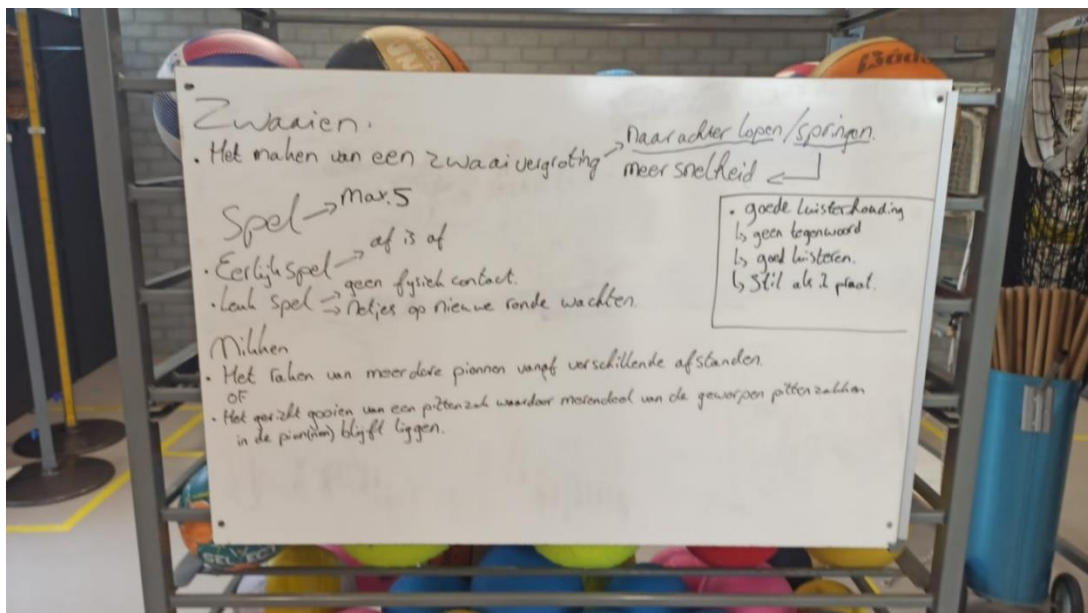 Zwaaien.
• Het maken van een zwaaivergroting → naar achter lopen/springen.
meer snelheid ←
Spel → max. 5
• Eerlijk spel → af is af
• Leuk spel → geen fysiek contact.
→ netjes op nieuwe ronde wachten.
• goede luisterhouding
↳ geen tegenwoord
↳ goed luisteren.
↳ Stil als praat.
Mikken
• Het raken van meerdere pionnen vanaf verschillende afstanden.
OF
• Het gericht gooien van een pittenzak waardoor merendeel van de geworpen pittenzakken
in de pion(nen) blijft liggen.
SELECT